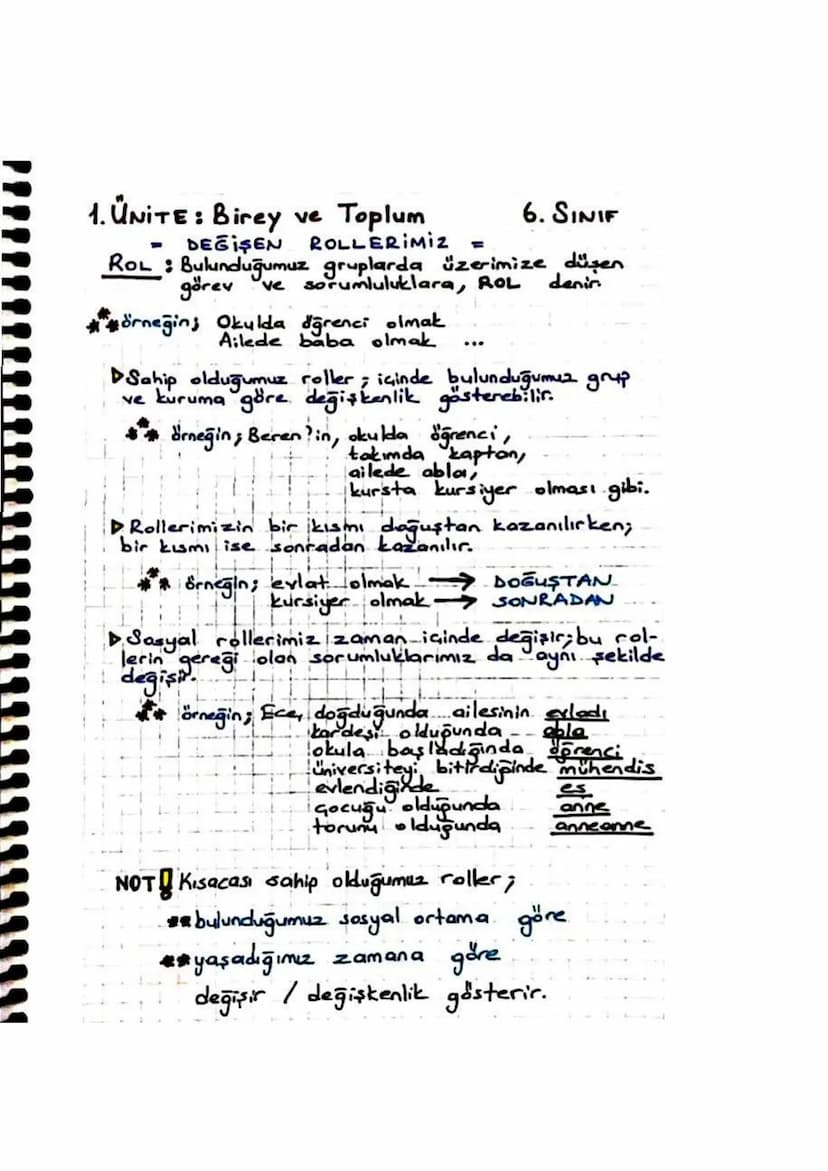 1. ÜNİTE: Birey ve Toplum 6. SINIF
= DEĞİŞEN ROLLERİMİZ =
ROL : Bulunduğumuz gruplarda üzerimize düşen
görev ve sorumluluklara, ROL denir.
örneğin; Okulda öğrenci olmak
Ailede baba olmak ...
Sahip olduğumuz roller ; içinde bulunduğumuz grup
ve kuruma göre değişkenlik gösterebilir.
örneğin ; Beren'in, okulda öğrenci,
takımda kaptan,
ailede abla,
kursta kursiyer olması gibi.
Rollerimizin bir kısmı doğuştan kazanılırken;
bir kısmı ise sonradan kazanılır.
örneğin; evlat olmak → DOĞUŞTAN
kursiyer olmak → SONRADAN
Sosyal rollerimiz zaman içinde değişir; bu rol-
lerin gereği olan sorumluklarımız da aynı şekilde
değişir.
örneğin; Ece, doğduğunda ailesinin evladı
kardeşi olduğunda abla
okula başladığında öğrenci
üniversiteyi bitirdiğinde mühendis
evlendiğinde eş
çocuğu olduğunda anne
torunu olduğunda anneanne
NOT! Kısacası sahip olduğumuz roller ;
** bulunduğumuz sosyal ortama göre
** yaşadığımız zamana göre
değişir / değişkenlik gösterir.